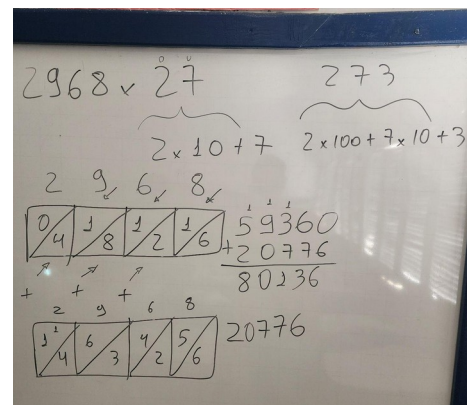 2968 x 27
D U
2 x 10 + 7
273
2 x 100 + 7 x 10 + 3
2 9 6 8
0/4 1/8 1/2 1/6
+ + +
1 1 1
59360
+ 20776
80136
2 9 6 8
1
1/4 6/3 4/2 5/6
20776